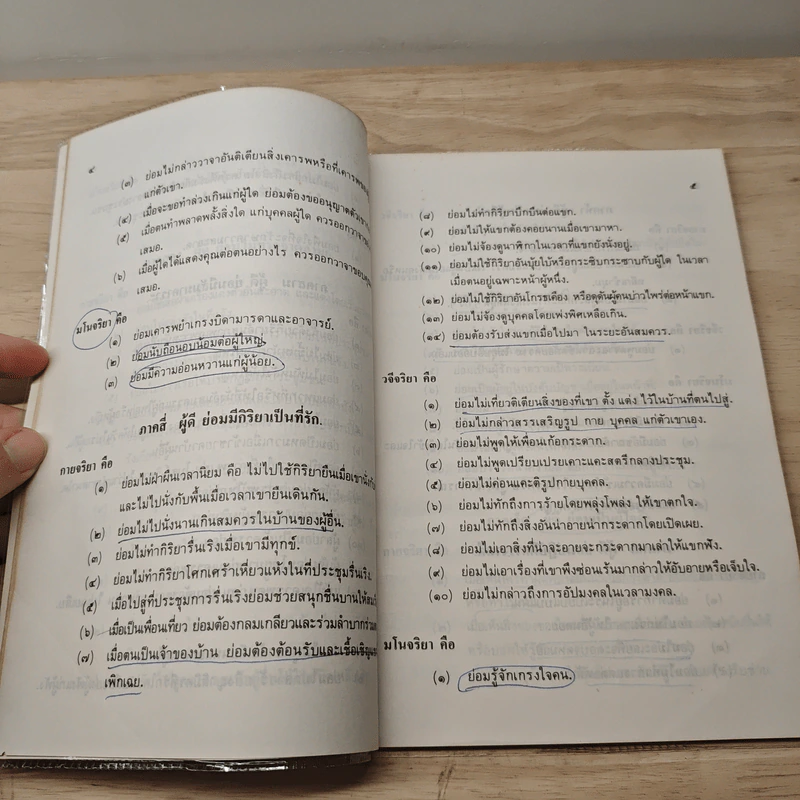 ๔
(๓) ย่อมไม่กล่าววาจาอันติเตียนสิ่งเคารพหรือที่เคารพ
แก่ตัวเขา.
(๔) เมื่อจะขอทำล่วงเกินแก่ผู้ใด ย่อมต้องขออนุญาตตัว
(๕) เมื่อตนทำพลาดพลั้งสิ่งใด แก่บุคคลผู้ใด ควรออกวาจา
เสมอ.
(๖) เมื่อผู้ใดได้แสดงคุณต่อตนอย่างไร ควรออกวาจาขอบคุณ
เสมอ.
มโนจริยา คือ
(๑) ย่อมเคารพยำเกรงบิดามารดาและอาจารย์.
(๒) ย่อมนับถือนอบน้อมต่อผู้ใหญ่.
(๓) ย่อมมีความอ่อนหวานแก่ผู้น้อย.
ภาคสี่ ผู้ดี ย่อมมีกิริยาเป็นที่รัก.
กายจริยา คือ
(๑) ย่อมไม่ฝ่าฝืนเวลานิยม คือ ไม่ไปใช้กิริยายืนเมื่อเขานั่ง
และไม่ไปนั่งกับพื้นเมื่อเวลาเขายืนเดินกัน.
(๒) ย่อมไม่ไปนั่งนานเกินสมควรในบ้านของผู้อื่น.
(๓) ย่อมไม่ทำกิริยารื่นเริงเมื่อเขามีทุกข์.
(๔) ย่อมไม่ทำกิริยาโศกเศร้าเหี่ยวแห้งในที่ประชุมรื่นเริง.
(๕) เมื่อไปสู่ที่ประชุมการรื่นเริงย่อมช่วยสนุกชื่นบานให้
(๖) เมื่อเป็นเพื่อนเที่ยว ย่อมต้องกลมเกลียวและร่วมลำบาก
(๗) เมื่อตนเป็นเจ้าของบ้าน ย่อมต้องต้อนรับและเชื้อเชิญ
เพิกเฉย.
๕
(๘) ย่อมไม่ทำกิริยาบึกบึนต่อแขก.
(๙) ย่อมไม่ให้แขกต้องคอยนานเมื่อเขามาหา.
(๑๐) ย่อมไม่จ้องดูนาฬิกาในเวลาที่แขกยังนั่งอยู่.
(๑๑) ย่อมไม่ใช้กิริยาอันบุ้ยใบ้หรือกระซิบกระซาบกับผู้ใด ในเวลา
เมื่อตนอยู่เฉพาะหน้าผู้หนึ่ง.
(๑๒) ย่อมไม่ใช้กิริยาอันโกรธเคือง หรือดุดันผู้คนบ่าวไพร่ต่อหน้าแขก.
(๑๓) ย่อมไม่จ้องดูบุคคลโดยเพ่งพิศเหลือเกิน.
(๑๔) ย่อมต้องรับส่งแขกเมื่อไปมา ในระยะอันสมควร.
วจีจริยา คือ
(๑) ย่อมไม่เที่ยวติเตียนสิ่งของที่เขา ตั้ง แต่ง ไว้ในบ้านที่ตนไปสู่.
(๒) ย่อมไม่กล่าวสรรเสริญรูป กาย บุคคล แก่ตัวเขาเอง.
(๓) ย่อมไม่พูดให้เพื่อนเก้อกระดาก.
(๔) ย่อมไม่พูดเปรียบเปรยเคาะแคะสตรีกลางประชุม.
(๕) ย่อมไม่ค่อนแคะติรูปกายบุคคล.
(๖) ย่อมไม่ทักถึงการร้ายโดยพลุ่งโพล่ง ให้เขาตกใจ.
(๗) ย่อมไม่ทักถึงสิ่งอันน่าอายน่ากระดากโดยเปิดเผย.
(๘) ย่อมไม่เอาสิ่งที่น่าจะอายจะกระดากมาเล่าให้แขกฟัง.
(๙) ย่อมไม่เอาเรื่องที่เขาพึงซ่อนเร้นมากล่าวให้อับอายหรือเจ็บใจ.
(๑๐) ย่อมไม่กล่าวถึงการอัปมงคลในเวลามงคล.
มโนจริยา คือ
(๑) ย่อมรู้จักเกรงใจคน.